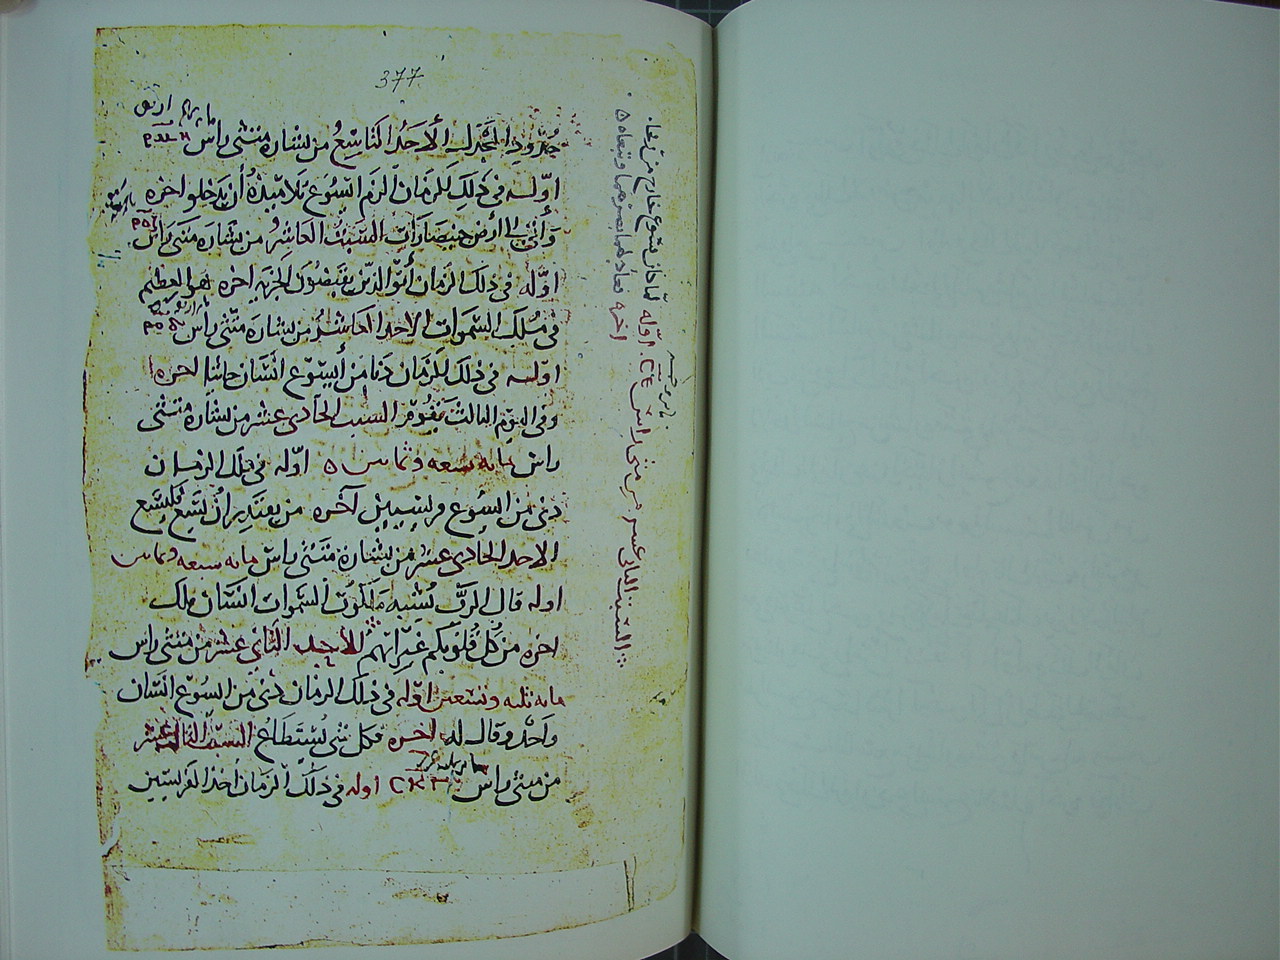 377
حدود المجدل الأحد التاسع من بشارة متى راس
اوله في ذلك الزمان الزم اليسوع تلاميذه أن يدخلوا اخره
وأتى إلى أرض جنيصارات السبت العاشر من بشارة متى راس
اوله في ذلك الزمان أتوا الذين يقبضون الجزية اخره هو العظيم
في ملك السموات الاحد العاشر من بشارة متى راس
اوله في ذلك الزمان دنا من أيسوع انسان جاثيا اخره
وفي اليوم الثالث يقوم السبت الحادي عشر من بشارة متى
راس مايه سبعه وثمانين اوله في ذلك الزمان
دنى من اليسوع فريسيين آخره من يقتدر ان يسع فليسع
الاحد الحادي عشر من بشارة متى راس مايه سبعه وثمانين
اوله قال الرب تشبه ملكوت السموات انسان ملك
اخره من كل قلوبكم غفرانهم الأحد الثاني عشر من متى راس
مايه ثلثه وتسعين اوله في ذلك الزمان دنى من اليسوع انسان
واحد وقال له اخره فكل شي يستطاع السبت الثالث عشر
من متى راس اوله في ذلك الزمان أخذ الفريسيين
السبت الثاني عشر من متى راس اوله لما جاز يسوع خارج من
اخره وتبعاه